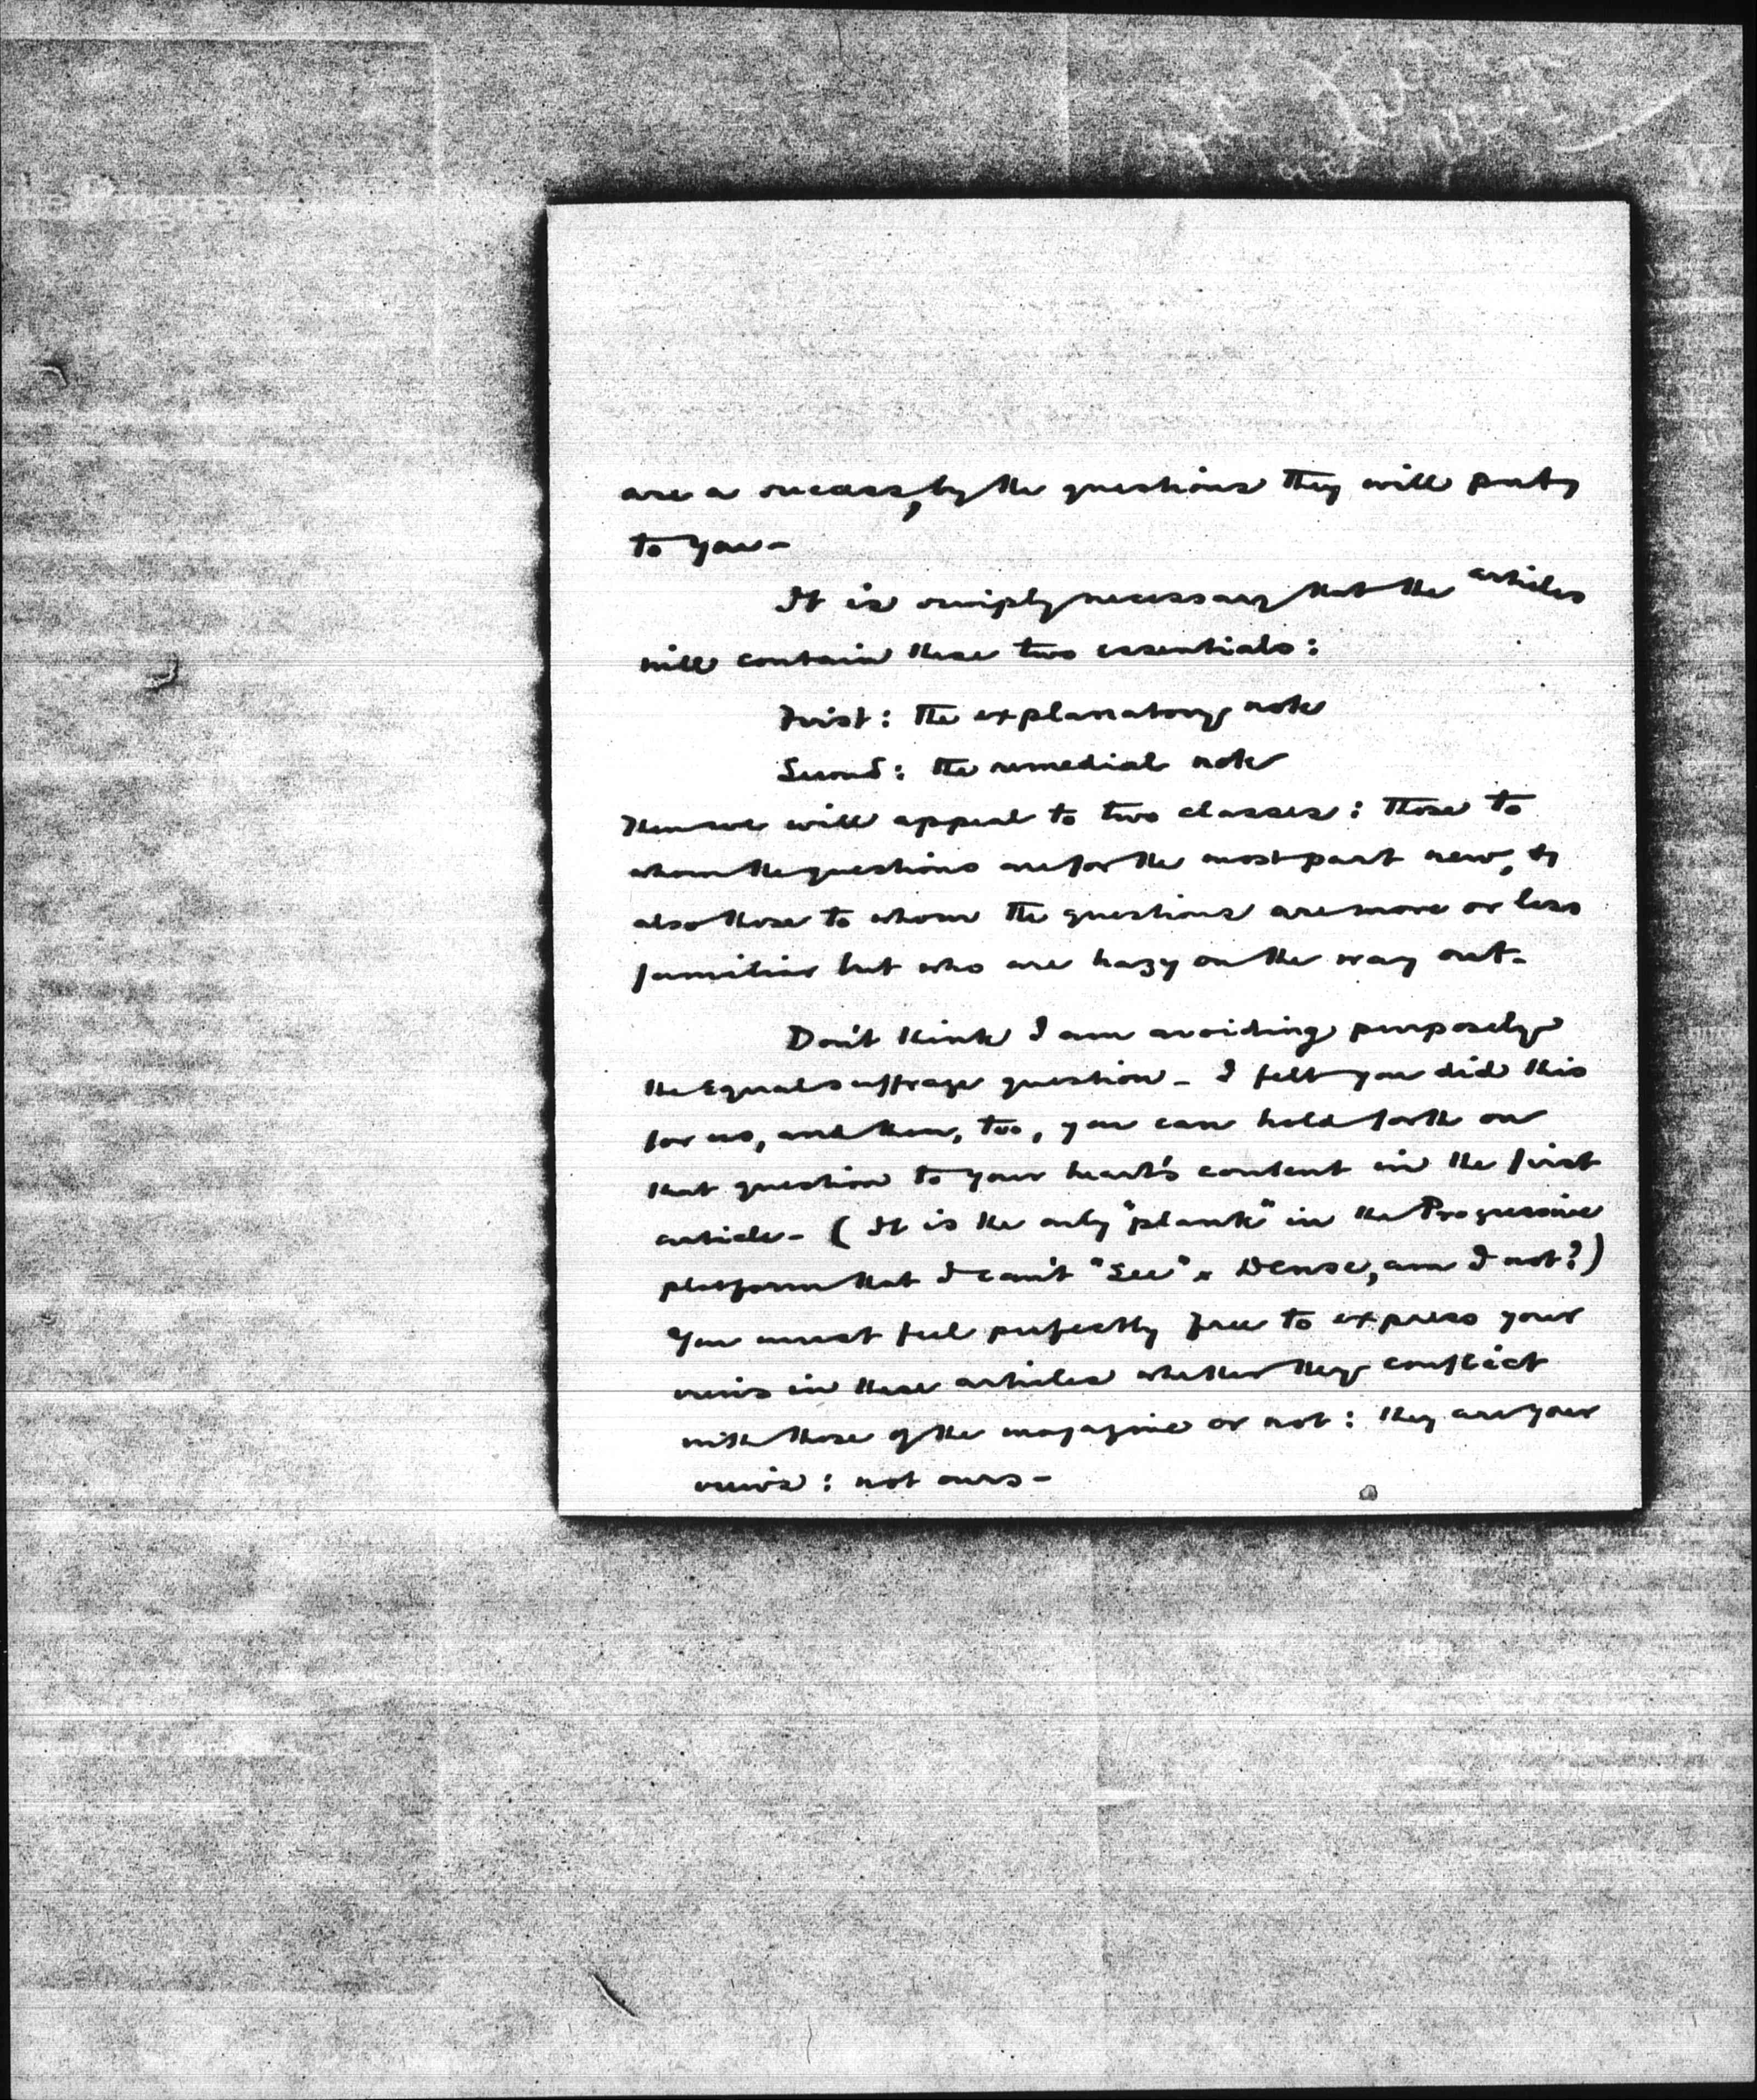 are a success, by the questions they will put
to you -
It is simply necessary that the articles
will contain these two essentials:
First: the explanatory note
Second: the remedial note
Then we will appeal to two classes: those to
whom the questions are for the most part new, &
also those to whom the questions are more or less
familiar but who are hazy on the way out.
Don't think I am avoiding purposely
the Equal suffrage question - I felt you did this
for us, and then, too, you can hold forth on
that question to your heart's content in the first
article - (It is the only "plank" in the Progressive
platform that I can't "see". Dense, am I not?)
You must feel perfectly free to express your
views in these articles whether they conflict
with those of the magazine or not: they are your
views: not ours -